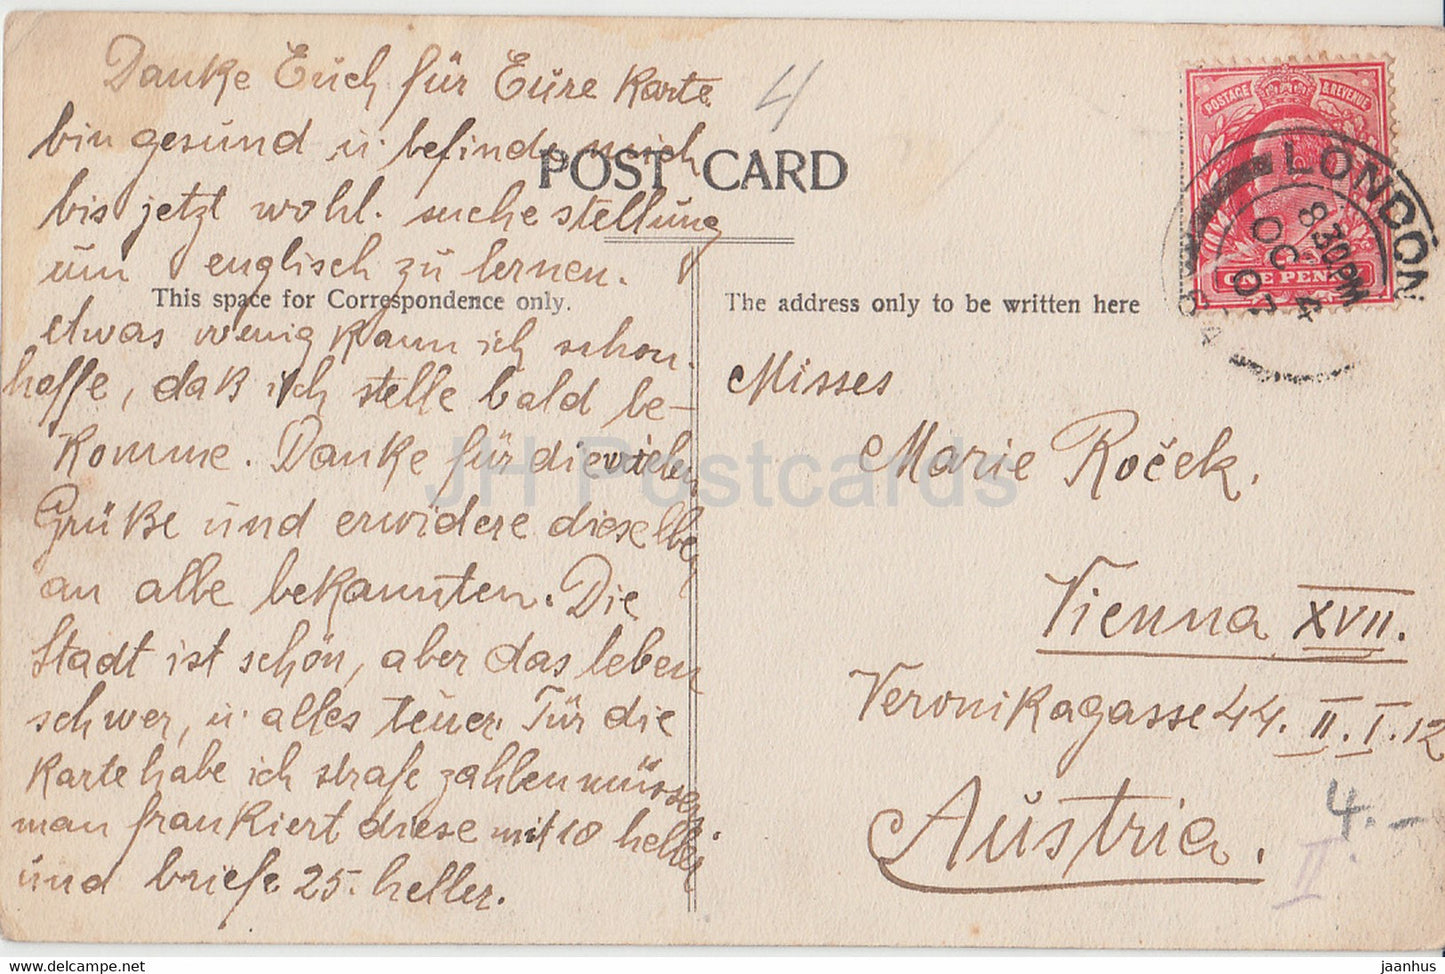 Danke Euch für Eure Karte
bin gesund u. befinde mich
bis jetzt wohl. suche stellung
um englisch zu lernen.
etwas wenig kann ich schon.
hoffe, daß ich stelle bald be-
komme. Danke für die vielen
Grüße und erwidere dieselben
an alle bekannten. Die
Stadt ist schön, aber das leben
schwer, u. alles teuer. Für die
Karte habe ich strafe zahlen müssen.
man frankiert diese mit 10 heller
und briefe 25. heller.
4
POST CARD
This space for Correspondence only.
The address only to be written here
POSTAGE & REVENUE
ONE PENNY
LONDON
8.30PM
OC 4
07
Misses
Marie Roček.
Vienna XVII.
Veronikagasse 44. II. I. 12
Austria.
4.-
II
JH Postcards
jaanhus.com
jaanhus